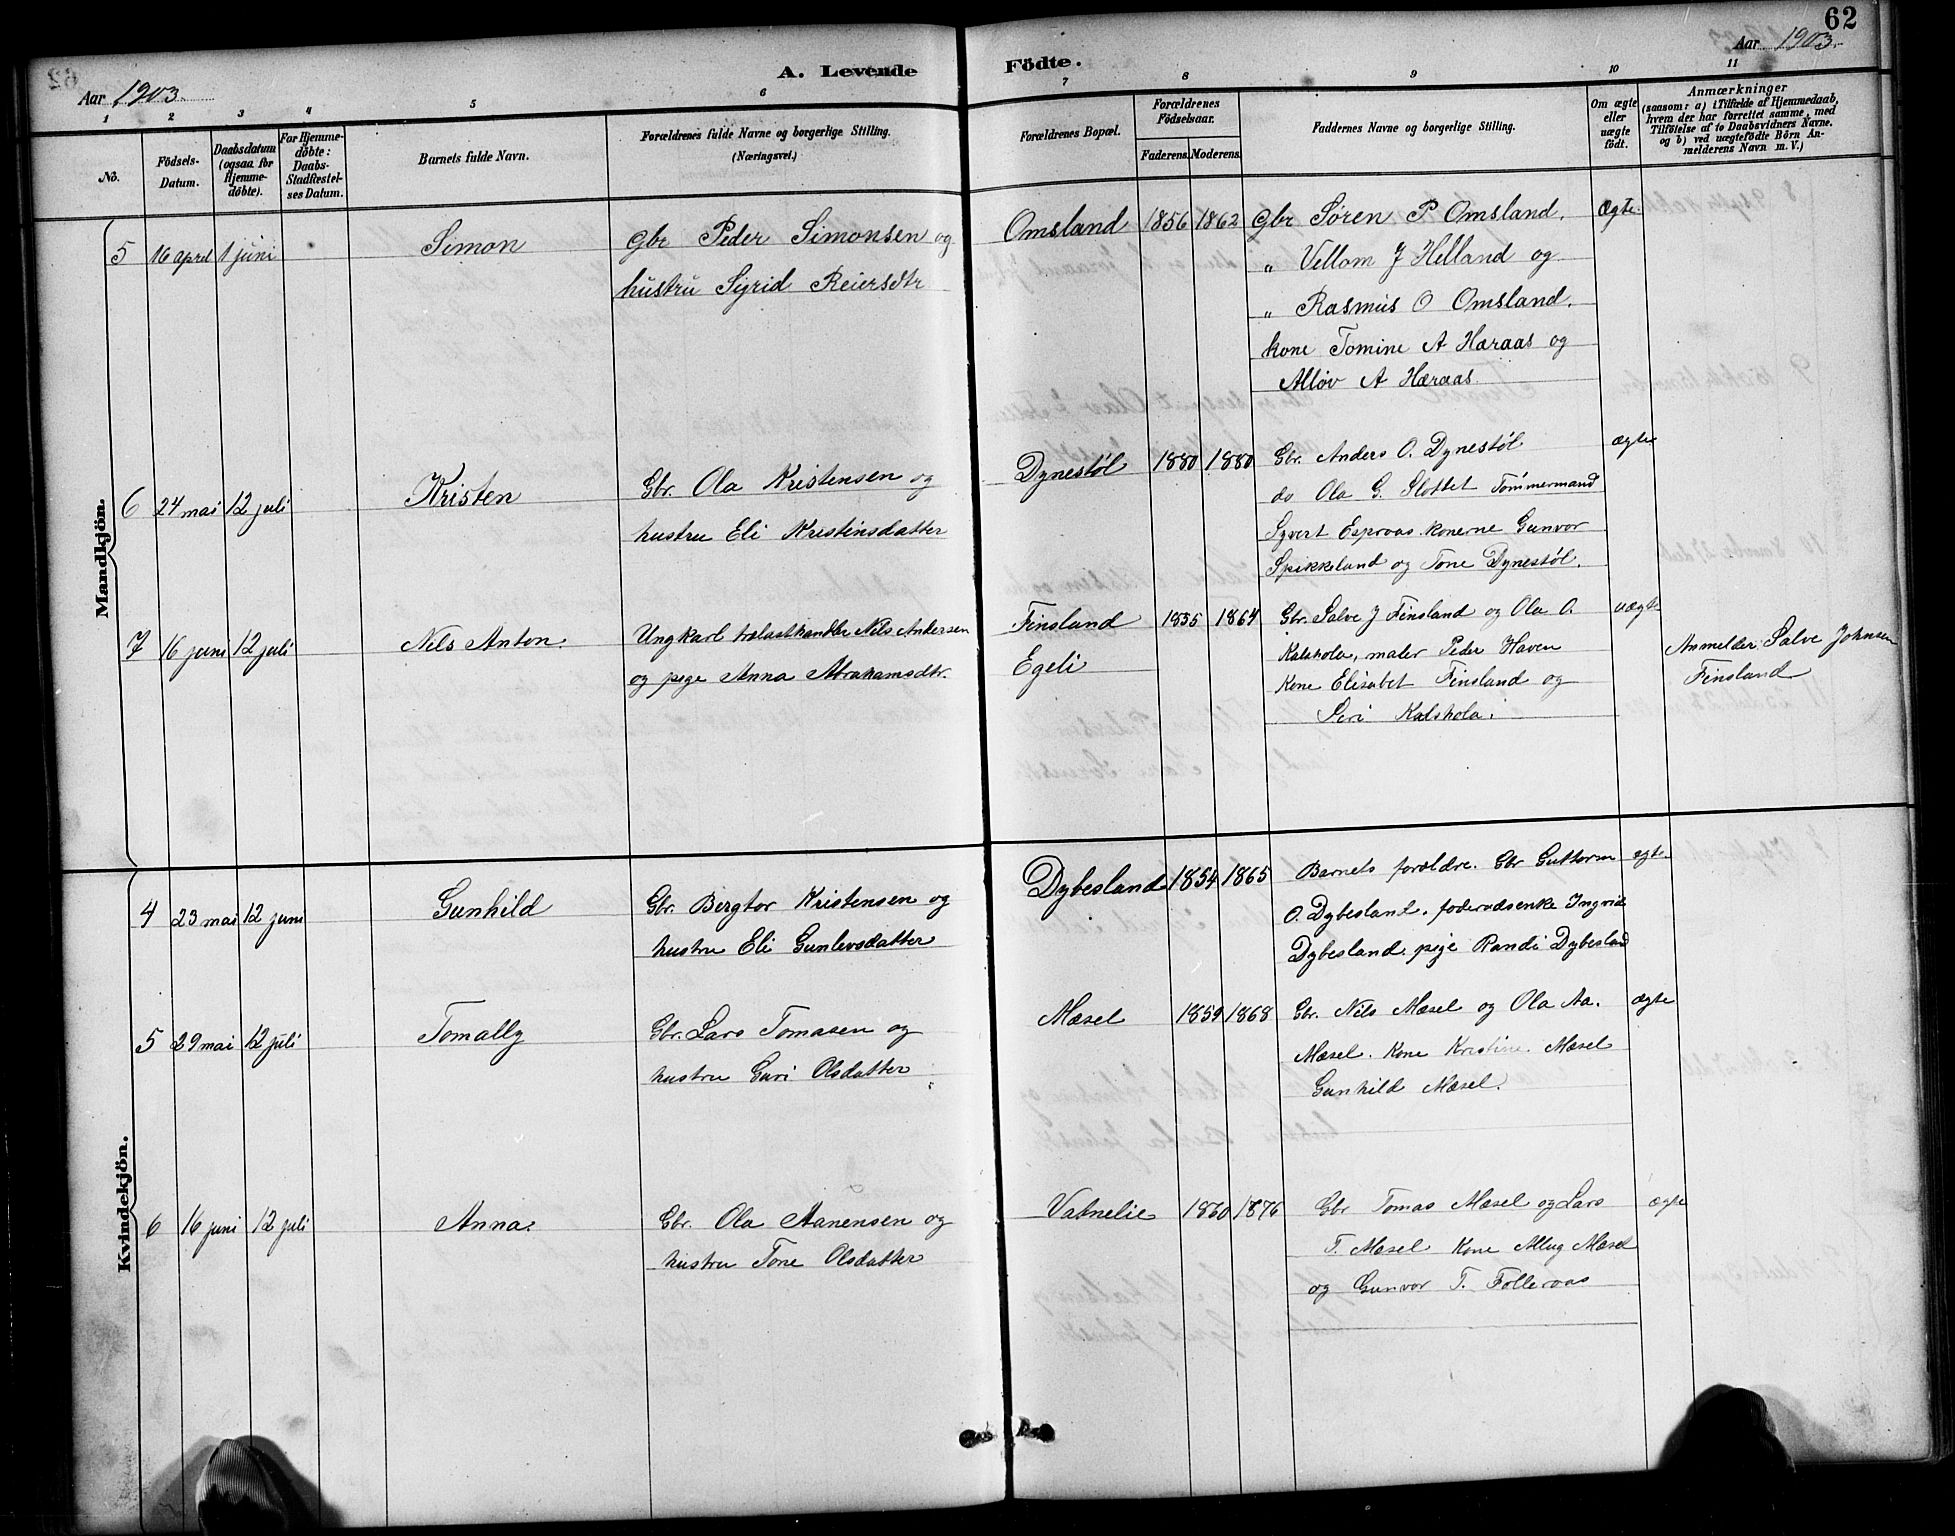 62
Aar 1903.
A. Levende Födte.
Aar 1903.
1 2 3 4 5 6 7 8 9 10 11
No.
Födsels-Datum.
Daabsdatum (ogsaa for Hjemme-döbte).
For Hjemme-döbte: Daabs-Stadfæstel-ses Datum.
Barnets fulde Navn.
Forældrenes fulde Navne og borgerlige Stilling. (Næringsvei.)
Forældrenes Bopæl.
Forældrenes Födselsaar.
Faderens. Moderens.
Faddernes Navne og borgerlige Stilling.
Om ægte eller uægte födt.
Anmærkninger (saasom: a) i Tilfælde af Hjemmedaab, hvem der har forrettet samme, med Tilföielse af to Daabsvidners Navne. og b) ved uægtefödte Börn An-melderens Navn m. V.)
Mandkjön.
5 16 april 1 juni Simon Gbr Peder Simonsen og Omsland 1856 1862 Gbr Søren P Omsland. Ægte.
hustru Sigrid Reiersdtr „ Vellom J Helland og
„ Rasmus O Omsland.
kone Tomine A Hæraas og
Alløv A Hæraas.
6 24 mai 12 juli Kristen Gbr. Ola Kristensen og Dynestøl 1880 1880 Gbr. Anders O. Dynestøl ægte
hustru Eli Kristinsdatter do Ola G. Slottet Tømmermand
Syvert Esperaas konerne Gunvor
Spikkeland og Tone Dynestøl.
7 16 juni 12 juli Nils Anton. Ungkarl trælasthandler Nils Andersen Finsland 1835 1864 Gbr. Salve J Finsland og Ola O. uægte Anmelder Salve Johnsen
og pige Anna Abrahamsdtr. Egeli Kalshola, maler Peder Haven Finsland
Kone Elisabet Finsland og
Siri Kalshola.
Kvindekjön.
4 23 mai 12 juni Gunhild Gbr. Bergtor Kristensen og Dybesland 1854 1865 Barnets forældre. Gbr Guttorm ægte
hustru Eli Gunlevsdatter O. Dybesland, foderadsenke Ingrid
Dybesland, pige Randi Dybesland
5 29 mai 12 juli Tomally Gbr. Lars Tomasen og Mæsel 1859 1868 Gbr. Nils Mæsel og Ola Aa. ægte
hustru Guri Olsdatter Mæsel. Kone Kristine Mæsel
Gunhild Mæsel.
6 16 juni 12 juli Anna. Gbr. Ola Aanensen og Vatnelie 1860 1876 Gbr Tomas Mæsel og Lars ægte
hustru Tone Olsdatter T. Mæsel Kone Allug Mæsel
og Gunvor T. Folleraas